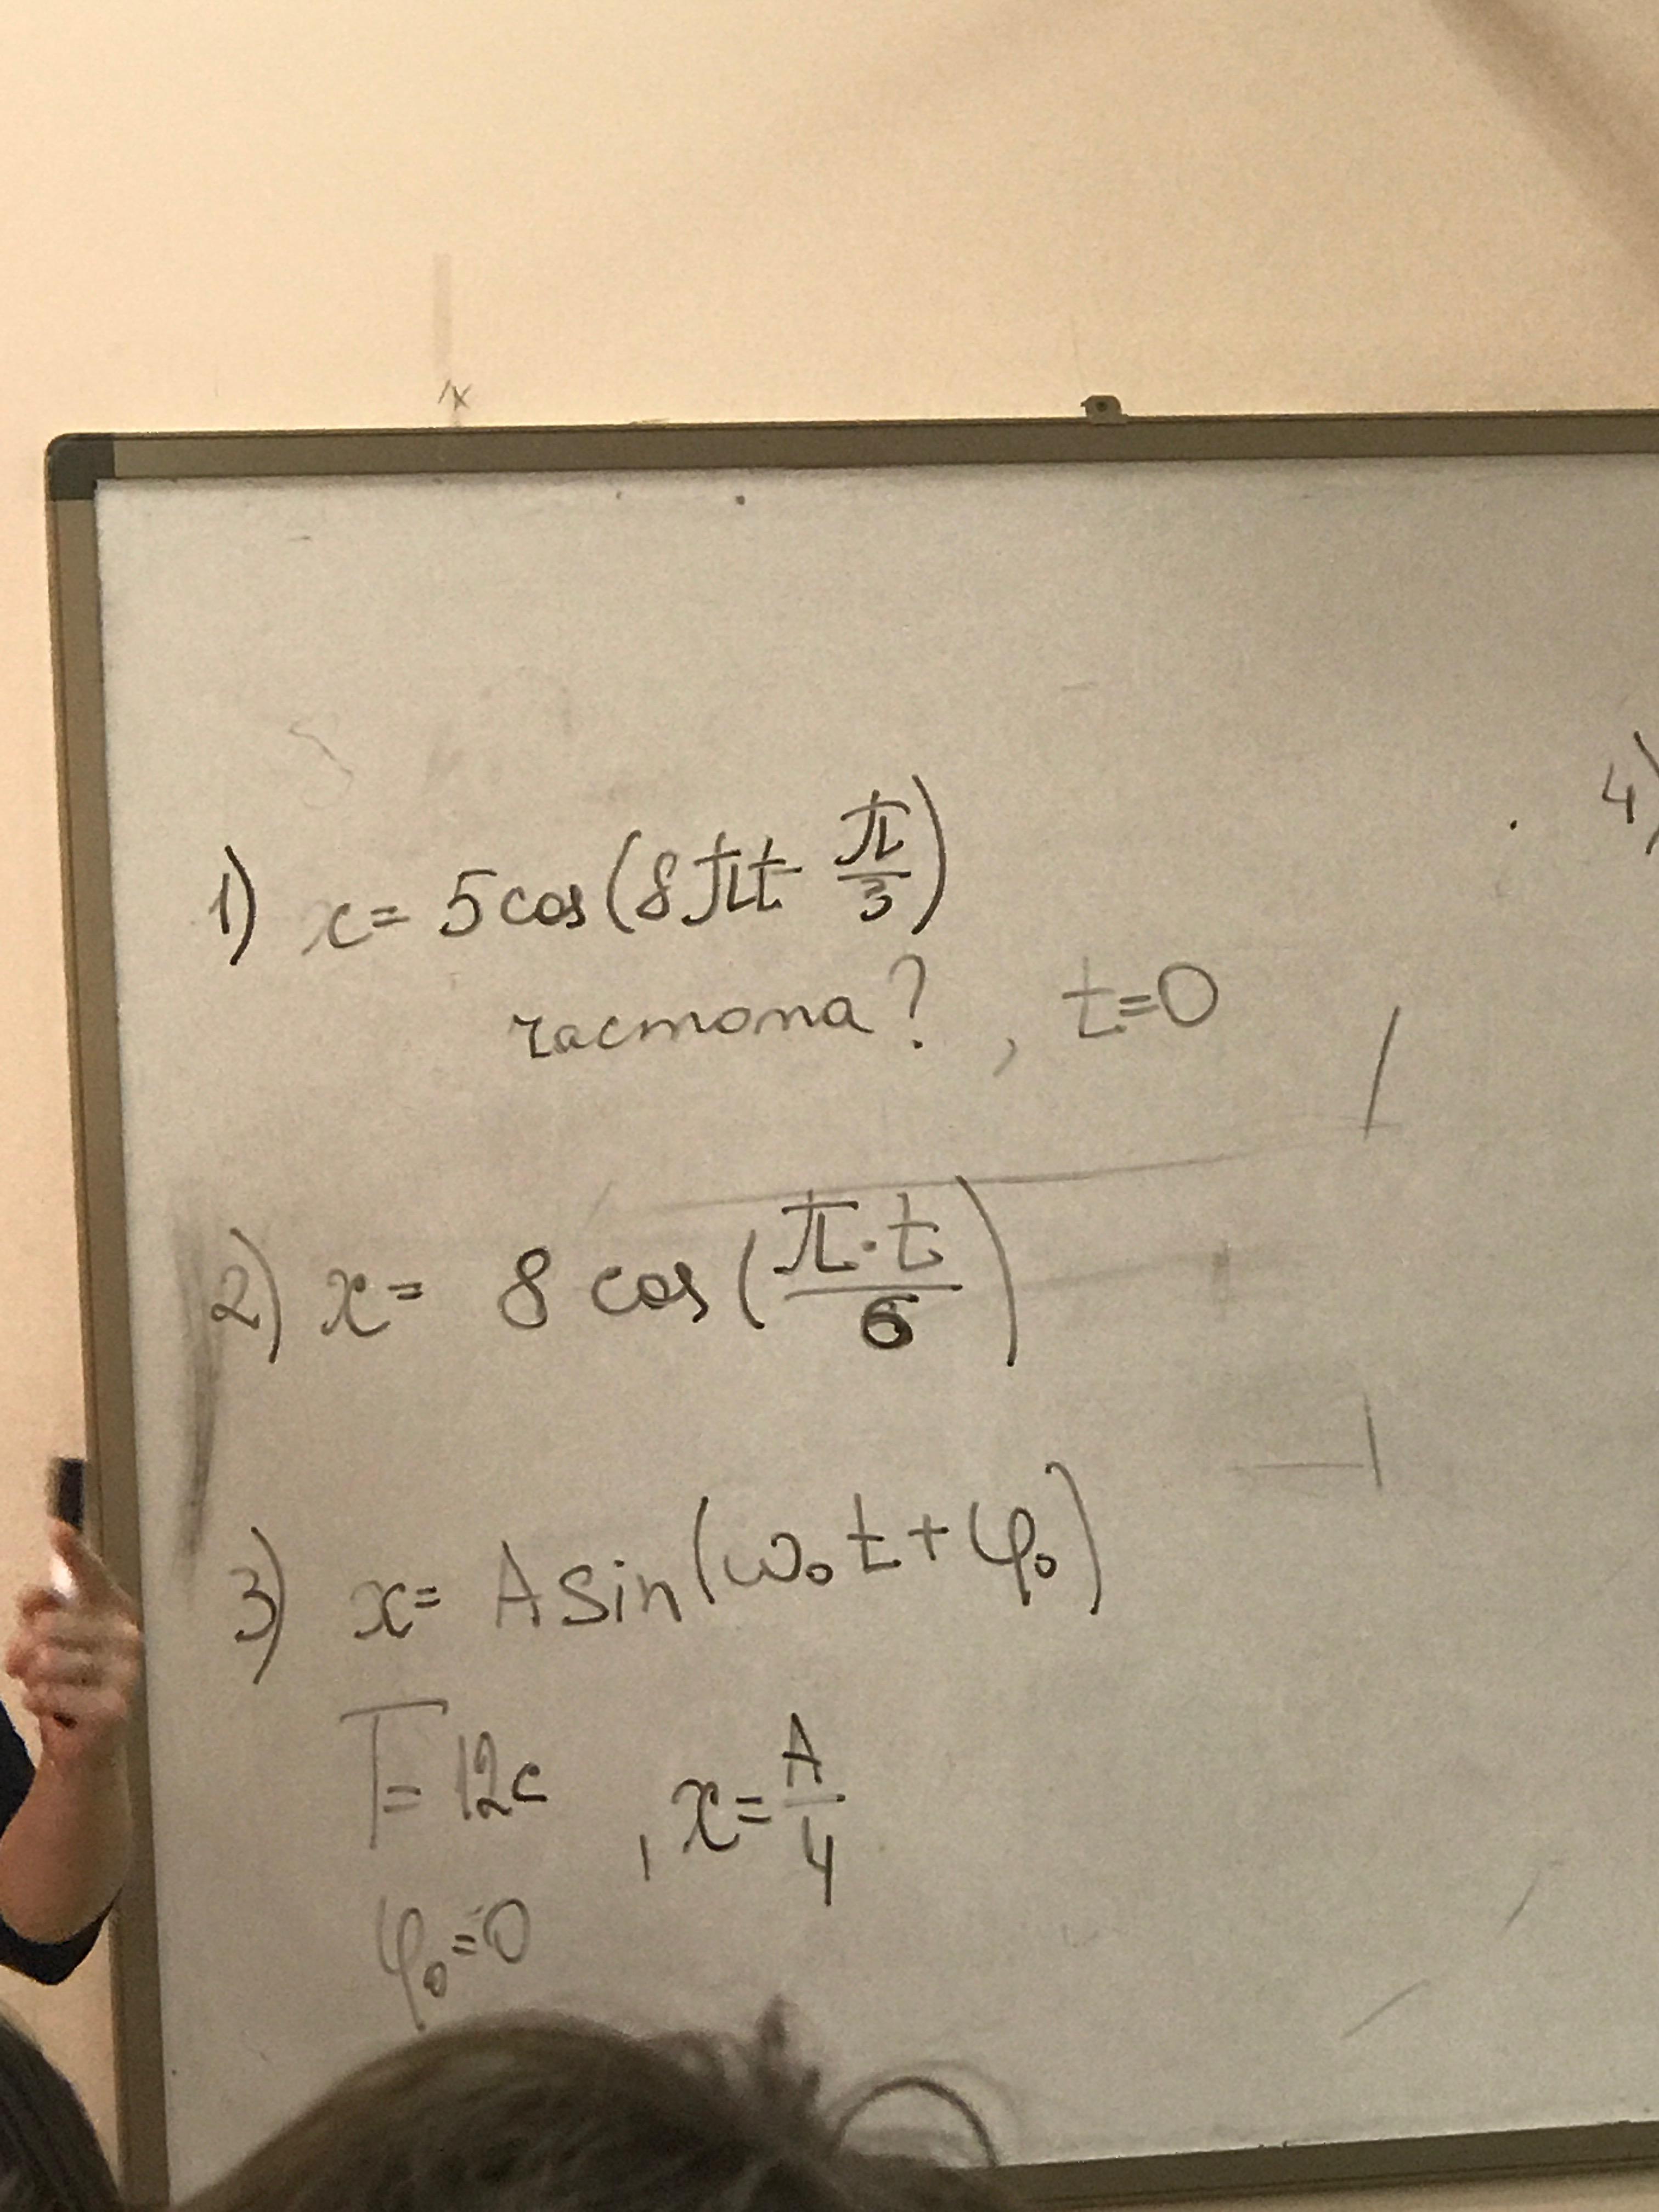 1) x = 5 cos(8πt - π/3)
частота?, t=0
2) x = 8 cos(π·t/6)
3) x = A sin(ω₀t + φ₀)
T = 12c, x = A/4
φ₀ = 0
4)